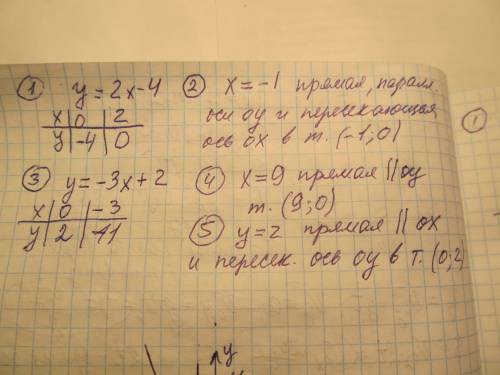 ① y = 2x-4
x | 0 | 2
y | -4 | 0
② x = -1 прямая, паралл.
оси оу и пересекающая
ось ох в т. (-1; 0)
③ y = -3x + 2
x | 0 | -3
y | 2 | -11
④ x = 9 прямая || оу
т. (9; 0)
⑤ y = 2 прямая || ох
и пересек. ось оу в т. (0; 2)
y
①